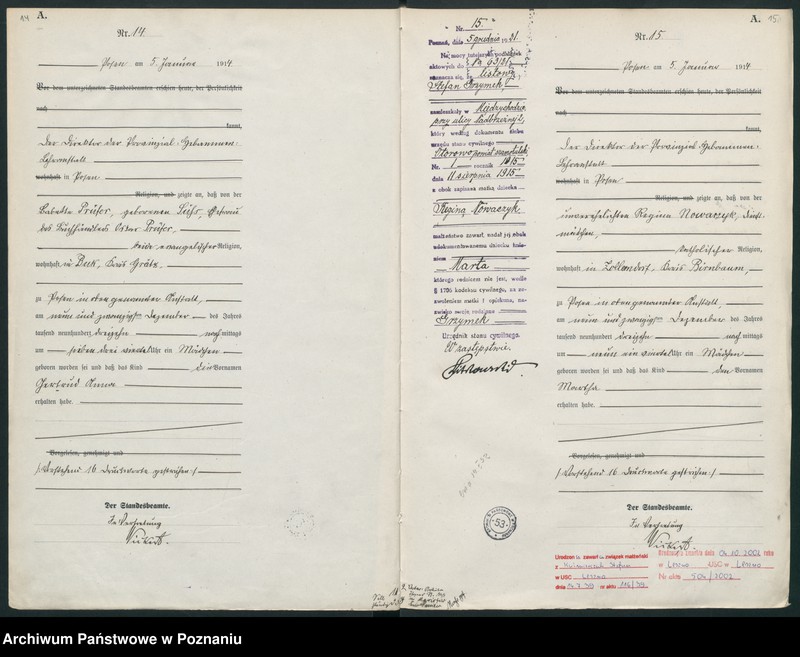 14
A.
Nr. 14
Posen am 5. Januar 1914
Vor dem unterzeichneten Standesbeamten erschien heute, der Persönlichkeit
nach
kannt,
Der Direktor der Provinzial-Hebammen-
Lehranstalt
wohnhaft in Posen
Religion, und zeigte an, daß von der
Prüfer, geborenen
des Buchhändlers Prüfer,
evangelischer Religion,
wohnhaft in Buk, Kreis Grätz,
zu Posen in oben genannter Anstalt,
am neun und zwanzigsten Dezember des Jahres
tausend neunhundert dreizehn nachmittags
um sieben drei viertel Uhr ein Mädchen
geboren worden sei und daß das Kind die Vornamen
Gertrud Anna
erhalten habe.
Vorgelesen, genehmigt und
(Vorstehend 16 Druckworte gestrichen:)
Der Standesbeamte.
In Vertretung
Nr. 15.
Poznań, dnia 5 grudnia 1921
Na mocy
aktowych do
Stefan Grzymek
zamieszkały w Międzychodzie
przy ulicy
który według dokumentu ślubu
urzędu stanu cywilnego
Otorowo powiat szamotulski
Nr. 1 rocznik 1915
dnia 11 sierpnia 1915
z obok zapisaną matką dziecka
Reginą Nowaczyk
małżeństwo zawarł, nadał jej obok
udokumentowanemu dziecku imie-
niem
Marta
którego rodzicem nie jest, wedle
§ 1706 kodeksu cywilnego, za ze-
zwoleniem matki i opiekuna, na-
zwisko swoje rodzinne
Grzymek
Urzędnik stanu cywilnego.
W zastępstwie.
53
A.
15
Nr. 15
Posen am 5. Januar 1914
Vor dem unterzeichneten Standesbeamten erschien heute, der Persönlichkeit
nach
kannt,
Der Direktor der Provinzial-Hebammen-
Lehranstalt
wohnhaft in Posen
Religion, und zeigte an, daß von der
unverehelichten Regina Nowaczyk, Dienst-
mädchen,
katholischer Religion,
wohnhaft in Zollendorf, Kreis Birnbaum,
zu Posen in oben genannter Anstalt,
am neun und zwanzigsten Dezember des Jahres
tausend neunhundert dreizehn nachmittags
um neun ein viertel Uhr ein Mädchen
geboren worden sei und daß das Kind den Vornamen
Martha
erhalten habe.
Vorgelesen, genehmigt und
(Vorstehend 16 Druckworte gestrichen:)
Der Standesbeamte.
In Vertretung
Urodzon zawarł związek małżeński
z Stefan
w USC Leszno
dnia nr aktu
dnia 04.10.2002 roku
w Leszno USC w Leszno
Nr aktu 504/2002
Archiwum Państwowe w Poznaniu